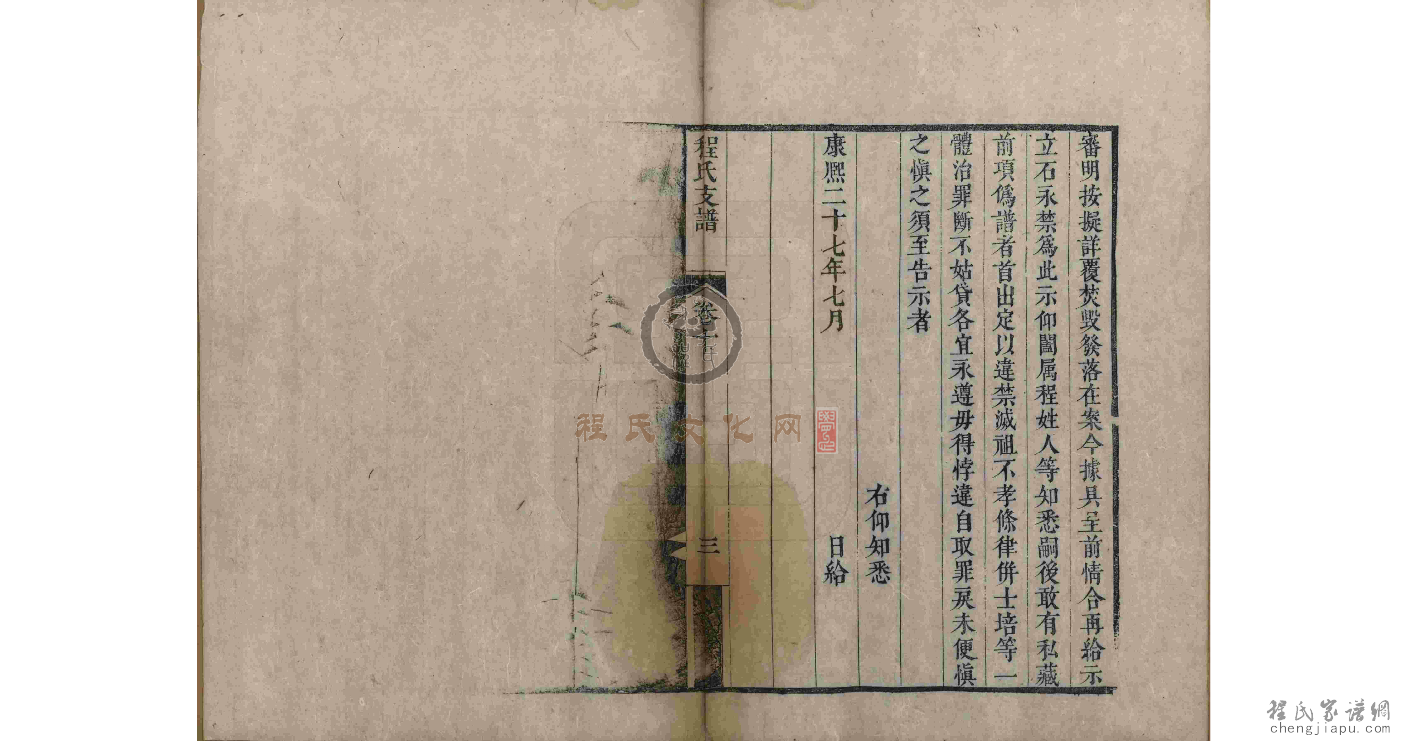 審明按擬詳覆焚毀發落在案今據具呈前情合再給示
立石永禁爲此示仰闔属程姓人等知悉嗣後敢有私藏
前項僞譜者首出定以違禁滅祖不孝條律併士培等一
體治罪斷不姑貸各宜永遵毋得悖違自取罪戾未便愼
之愼之須至告示者
右仰知悉
康熙二十七年七月 日給
程氏支譜 卷 三
程氏文化网
程氏家谱網
chengjiapu.com